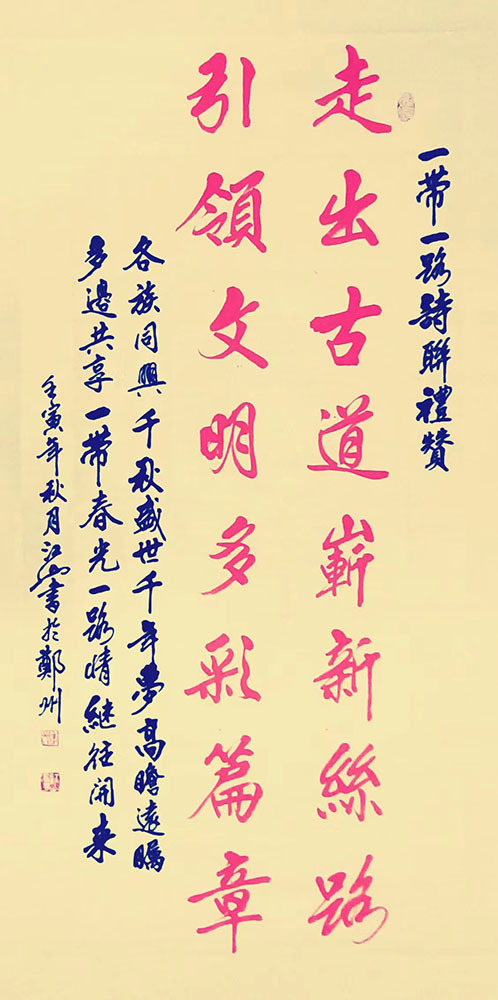 一带一路詩聯禮赞
走出古道嶄新絲路
引領文明多彩篇章
各族同興千秋盛世千年夢高瞻遠瞩
多邊共享一带春光一路情継往開来
壬寅年秋月江山書於鄭州